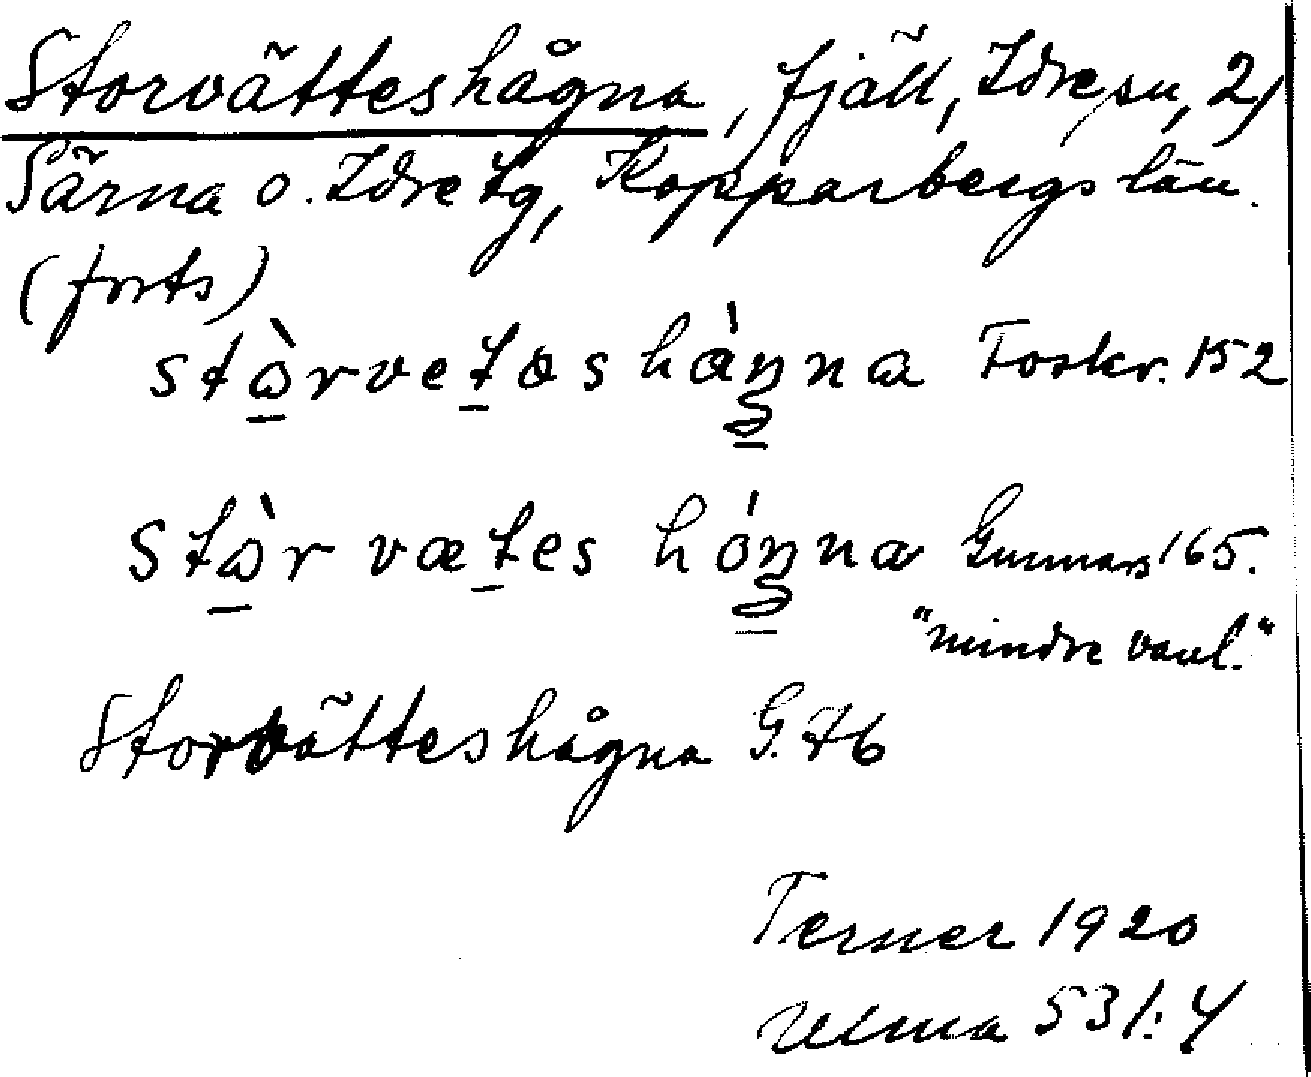 Storvätteshågna, fjäll, Idre sn, 2)
Särna o. Idre tg, Kopparbergs län.
(forts)
stɷ̀rvetəshȧŋna Foskr. 152
stɷ̀r vætes hȯŋna Gunnars 165.
"mindre vanl."
Storvätteshågna G. 76
Terner 1920
Ulma 531:4